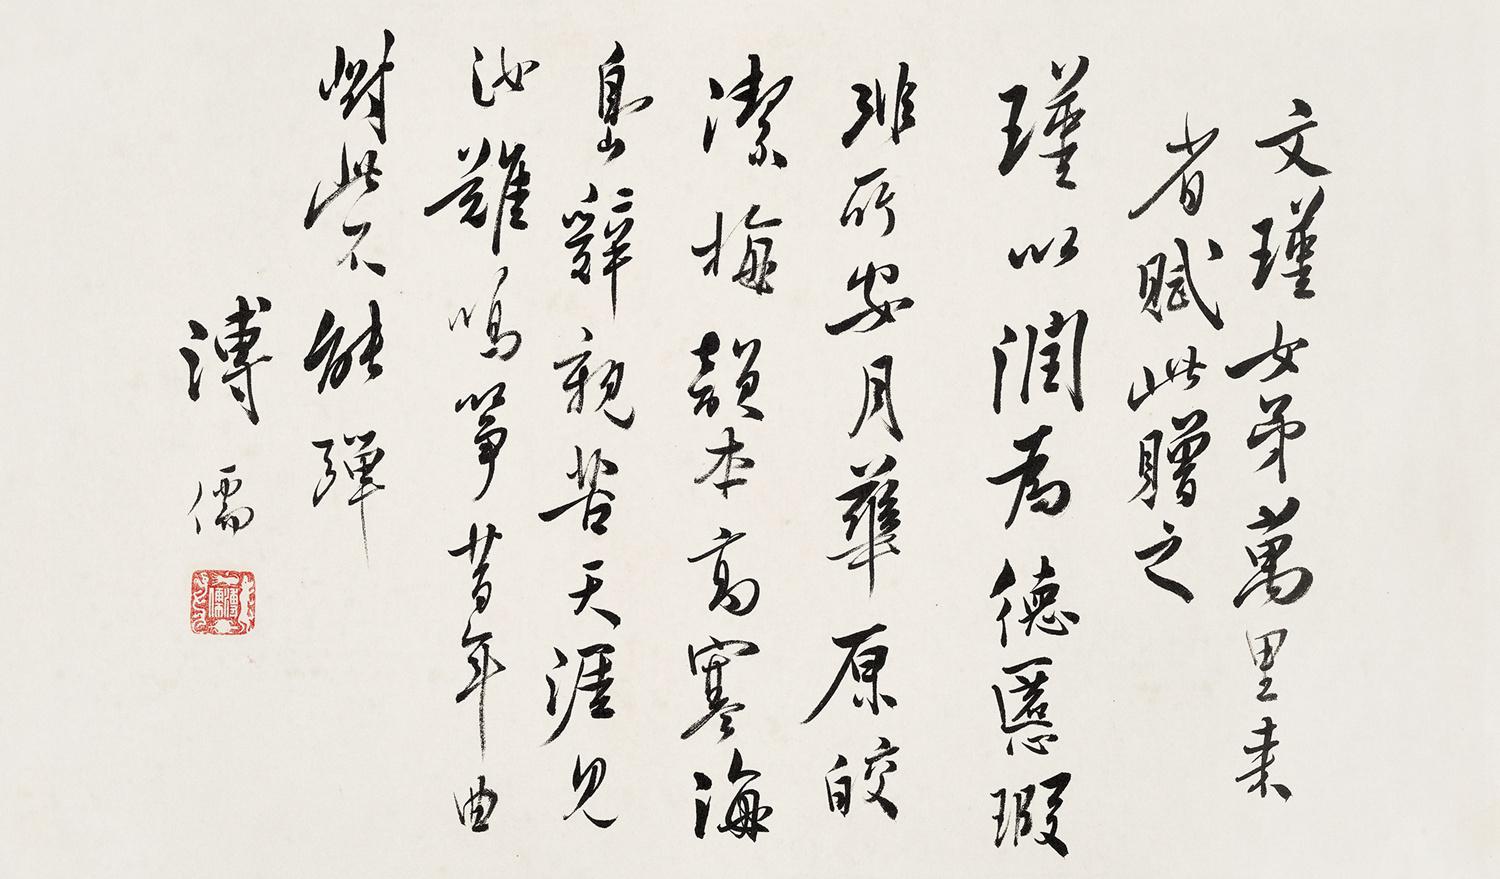 文瑾女弟萬里来
省賦此贈之
瑾以潤為德慝瑕
非所安月華原皎
潔梅韻本高寒海
島辭親苦天涯見
汝難鳴箏昔年曲
對此不能彈
溥儒
溥儒